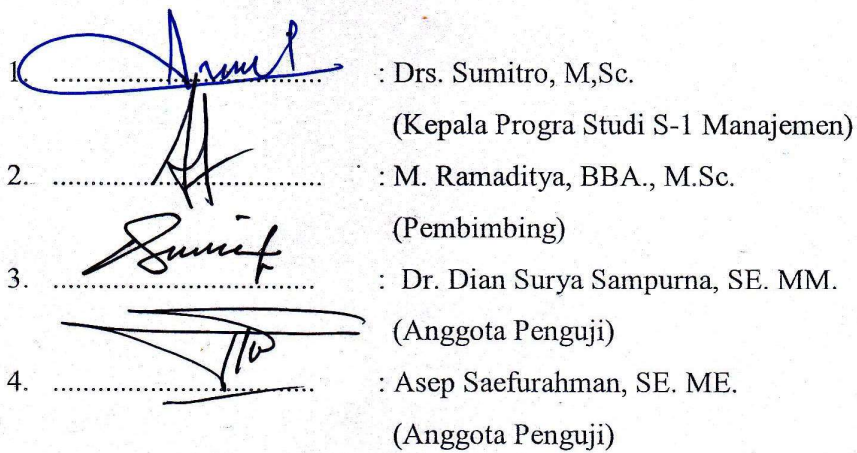 1. .................................. : Drs. Sumitro, M,Sc.
(Kepala Progra Studi S-1 Manajemen)
2. .................................. : M. Ramaditya, BBA., M.Sc.
(Pembimbing)
3. .................................. : Dr. Dian Surya Sampurna, SE. MM.
(Anggota Penguji)
4. .................................. : Asep Saefurahman, SE. ME.
(Anggota Penguji)